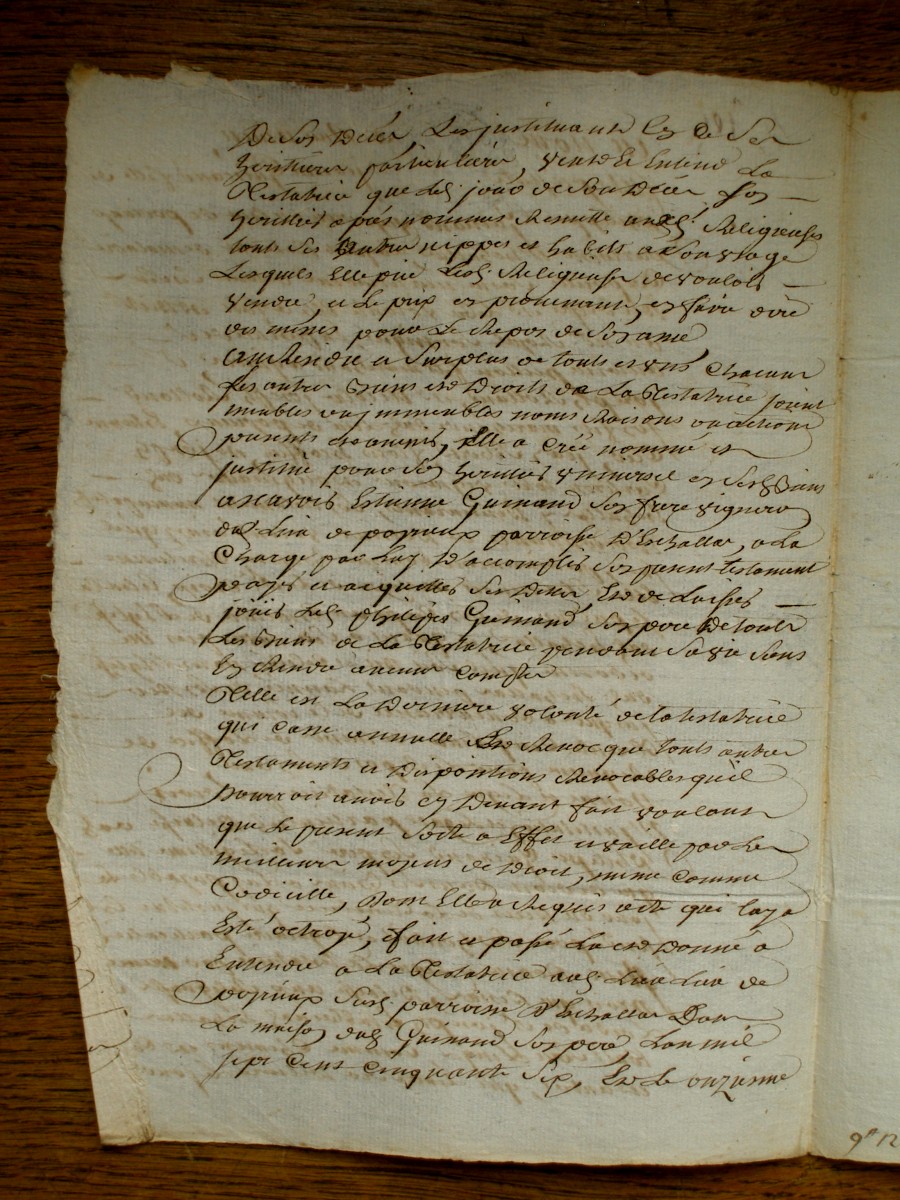 De son Décès, Les instituants en ce ses
héritières particulières, veut Et Entend La
Testatrice que led. jour de son Décès son
héritier après nommé Remette auxd. Religieuses
touts ses autres nippes et habits a son usage
Lesquels Elle prie Lesd. Religieuses de vouloir
vendre, et Le prix en provenant, en faire dire
des messes pour Le Repos de son ame
Au Résidu et Surplus de touts et uns Chacuns
ses autres Biens et Droits de La Testatrice soient
meubles ou immeubles noms Raisons ou actions
présents et avenir, Elle a créé nommé et
institué pour son héritier universel en sesd. Biens
a scavoir Estienne Guinand son frère vigneron
dud. Lieu de poyieux parroisse D'Echallas, a La
Charge par Luy D'accomplir son present testament
payer et acquitter ses Dettes, Et de Laisser
jouir Led. philipes Guinand son pere De touts
Les Biens de La Testatrice pendant sa vie sans
En Rendre aucun Compte
Telle est La Derniere volonté de la testatrice
qui casse annulle Et Revoque touts autres
Testaments et Dispositions Revocables qu'il
pourroit avoir cy Devant fait voulant
que Le present Sorte a Effet et vaille par Les
meilleurs moyens de Droit, même comme
Codicille, Dont Elle a Requis acte qui luy a
Esté octroyé, fait et passé Lu et Donné a
Entendre a La Testatrice aud. Lieu de
poyieux susd. parroisse d'Echallas Dans
La maison dud. Guinand son pere, L'an mil
sept Cent Cinquante Six, Et Le onzieme
9.re 12